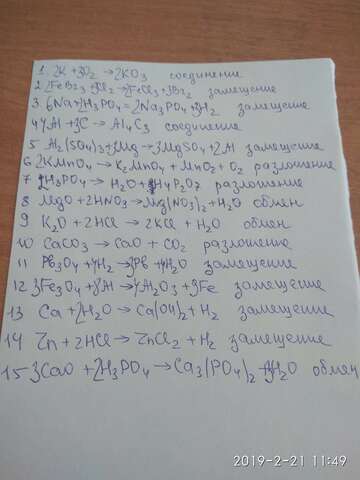 1. 2K + 3O2 → 2KO3 соединение
2 2FeBr3 + 3Cl2 → 2FeCl3 + 3Br2 замещение
3 6Na + 2H3PO4 = 2Na3PO4 + 3H2 замещение
4 4Al + 3C → Al4C3 соединение
5 Al2(SO4)3 + 3Mg → 3MgSO4 + 2Al замещение
6 2KMnO4 → K2MnO4 + MnO2 + O2 разложение
7 2H3PO4 → H2O + H4P2O7 разложение
8 MgO + 2HNO3 → Mg(NO3)2 + H2O обмен
9 K2O + 2HCl → 2KCl + H2O обмен
10 CaCO3 → CaO + CO2 разложение
11 Pb3O4 + 4H2 → 3Pb + 4H2O замещение
12 3Fe3O4 + 8Al → 4Al2O3 + 9Fe замещение
13 Ca + 2H2O → Ca(OH)2 + H2 замещение
14 Zn + 2HCl → ZnCl2 + H2 замещение
15 3CaO + 2H3PO4 → Ca3(PO4)2 + 3H2O обмен
2019-2-21 11:49